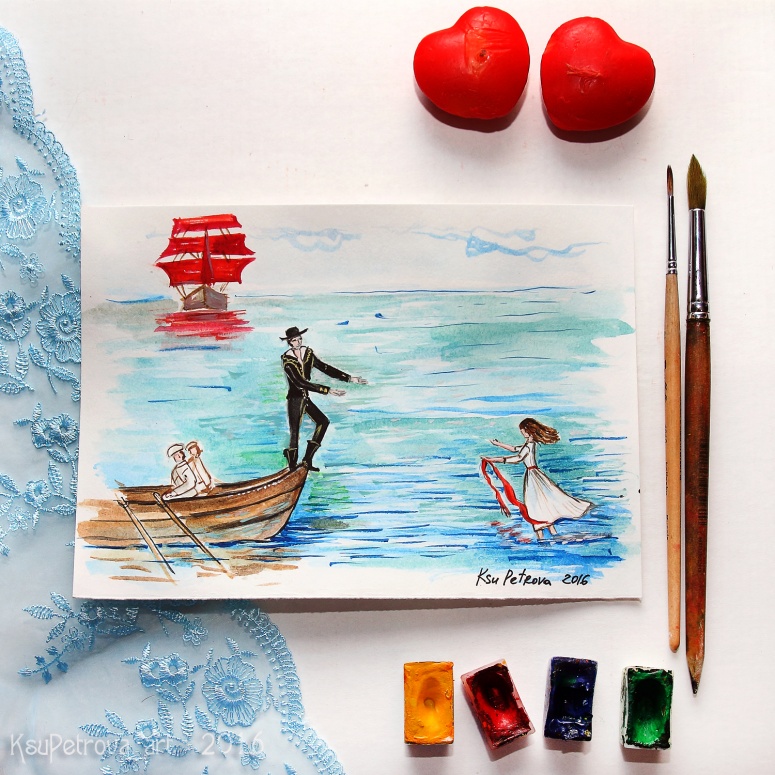 Ksu Petrova 2016
KsuPetrova art 2016